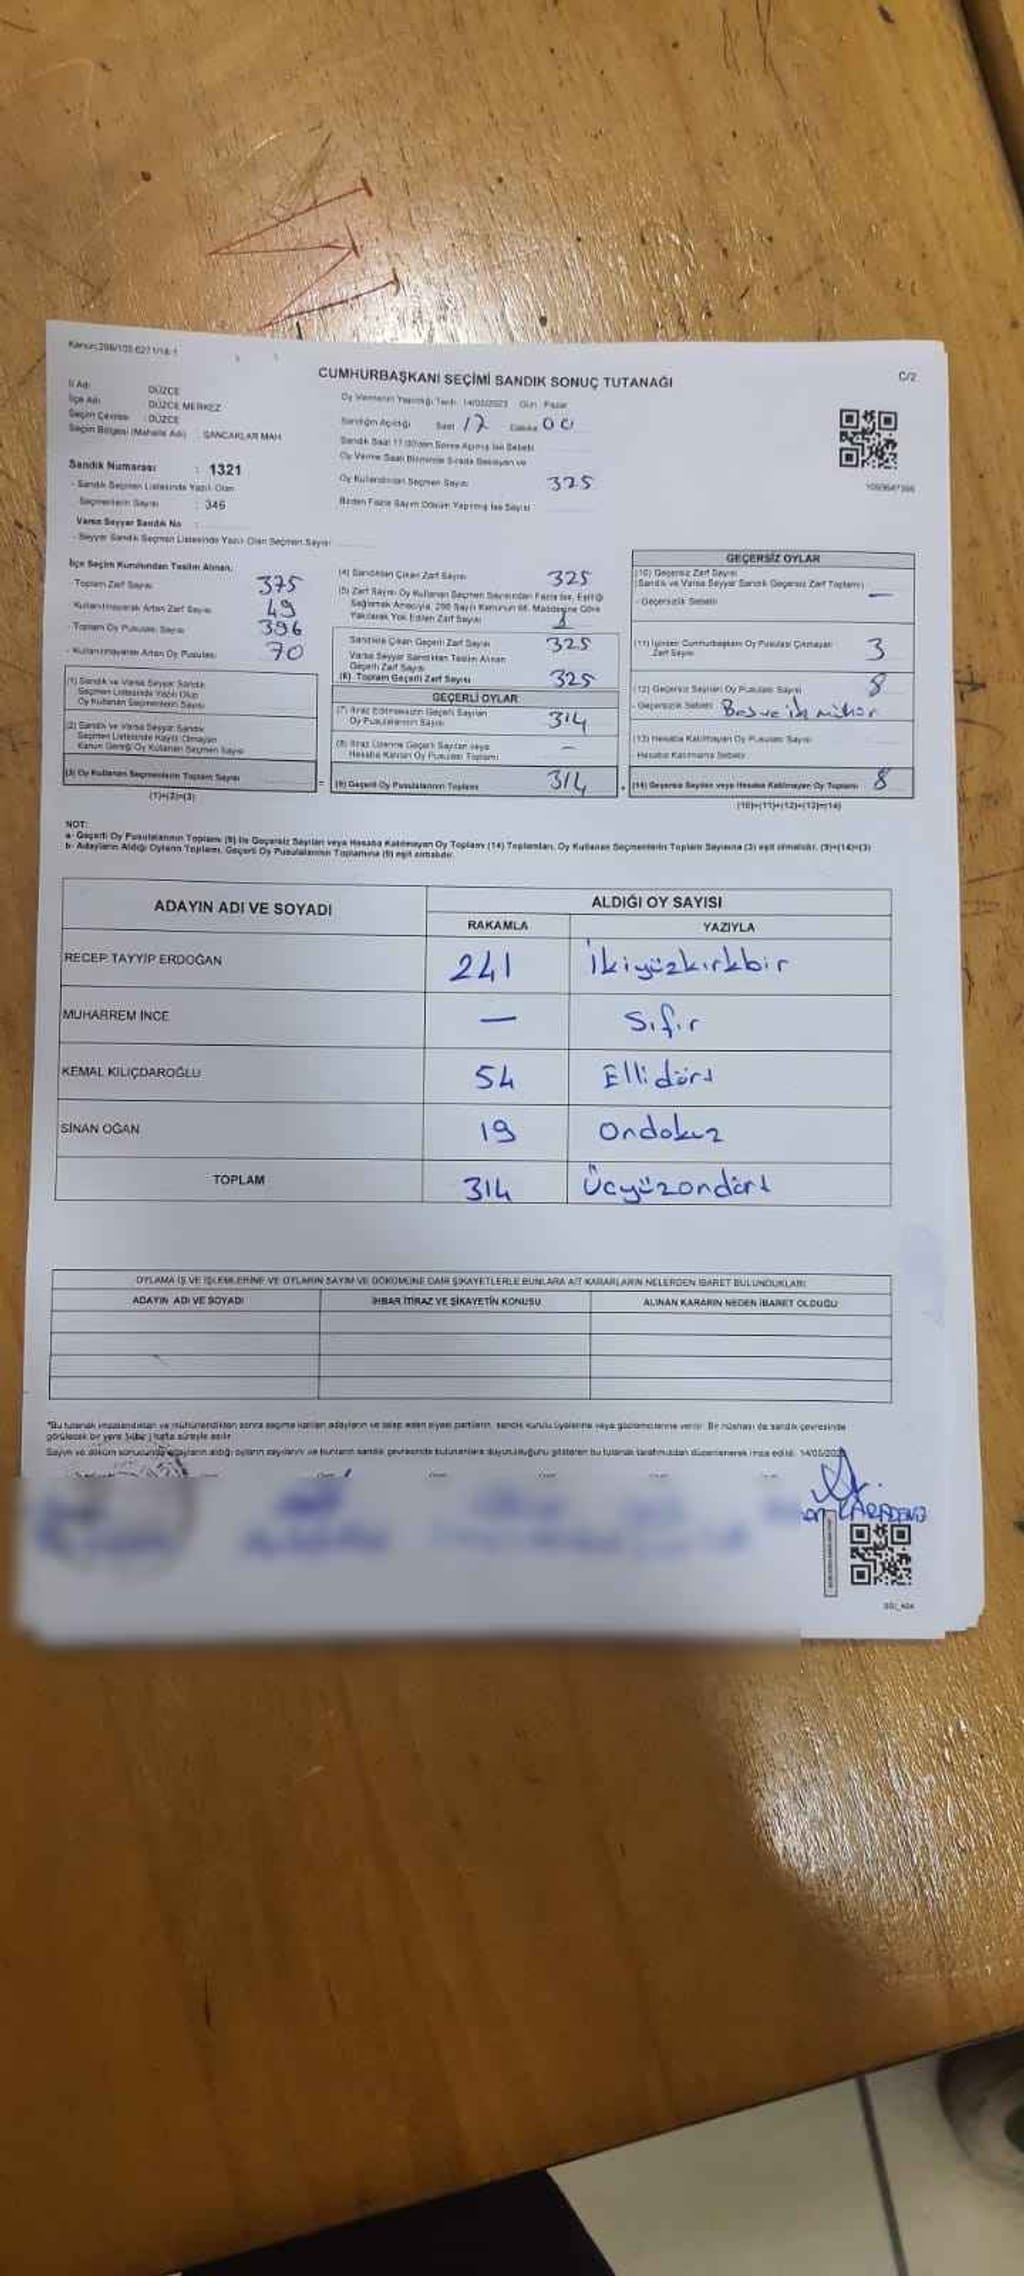 Kanun:298/105-6271/16-1
C/2
CUMHURBAŞKANI SEÇİMİ SANDIK SONUÇ TUTANAĞI
İl Adı : DÜZCE
İlçe Adı : DÜZCE MERKEZ
Seçim Çevresi : DÜZCE
Seçim Bölgesi (Mahalle Adı) : SANCAKLAR MAH.
Sandık Numarası : 1321
- Sandık Seçmen Listesinde Yazılı Olan
Seçmenlerin Sayısı : 346
Varsa Seyyar Sandık No :
- Seyyar Sandık Seçmen Listesinde Yazılı Olan Seçmen Sayısı
Oy Vermenin Yapıldığı Tarih 14/05/2023 Gün : Pazar
Sandığın Açıldığı Saat 17 Dakika 00
Sandık Saat 17.00'den Sonra Açılmış İse Sebebi
Oy Verme Saati Bitiminde Sırada Bekleyen ve
Oy Kullandırılan Seçmen Sayısı 325
Birden Fazla Sayım Döküm Yapılmış İse Sayısı
İlçe Seçim Kurulundan Teslim Alınan;
- Toplam Zarf Sayısı 375
- Kullanılmayarak Artan Zarf Sayısı 49
- Toplam Oy Pusulası Sayısı 396
- Kullanılmayarak Artan Oy Pusulası 70
(1) Sandık ve Varsa Seyyar Sandık
Seçmen Listesinde Yazılı Olup
Oy Kullanan Seçmenlerin Sayısı
(2) Sandık ve Varsa Seyyar Sandık
Seçmen Listesinde Kayıtlı Olmayan
Kanun Gereği Oy Kullanan Seçmen Sayısı
(3) Oy Kullanan Seçmenlerin Toplam Sayısı
(1)+(2)=(3)
(4) Sandıktan Çıkan Zarf Sayısı 325
(5) Zarf Sayısı Oy Kullanan Seçmen Sayısından Fazla ise, Eşitliği
Sağlamak Amacıyla, 298 Sayılı Kanunun 98. Maddesine Göre
Yakılarak Yok Edilen Zarf Sayısı
Sandıkta Çıkan Geçerli Zarf Sayısı 325
Varsa Seyyar Sandıktan Teslim Alınan
Geçerli Zarf Sayısı
(6) Toplam Geçerli Zarf Sayısı 325
GEÇERLİ OYLAR
(7) İtiraz Edilmeksizin Geçerli Sayılan
Oy Pusulalarının Sayısı 314
(8) İtiraz Üzerine Geçerli Sayılan veya
Hesaba Katılan Oy Pusulası Toplamı —
= (9) Geçerli Oy Pusulalarının Toplamı 314
GEÇERSİZ OYLAR
(10) Geçersiz Zarf Sayısı
(Sandık ve Varsa Seyyar Sandık Geçersiz Zarf Toplamı) —
- Geçersizlik Sebebi
(11) İçinden Cumhurbaşkanı Oy Pusulası Çıkmayan
Zarf Sayısı 3
(12) Geçersiz Sayılan Oy Pusulası Sayısı 8
- Geçersizlik Sebebi Baş ve iki mühür
(13) Hesaba Katılmayan Oy Pusulası Sayısı
Hesaba Katılmama Sebebi
+ (14) Geçersiz Sayılan veya Hesaba Katılmayan Oy Toplamı 8
(10)+(11)+(12)+(13)=(14)
NOT:
a- Geçerli Oy Pusulalarının Toplamı (9) ile Geçersiz Sayılan veya Hesaba Katılmayan Oy Toplamı (14) Toplamları, Oy Kullanan Seçmenlerin Toplam Sayısına (3) eşit olmalıdır. (9)+(14)=(3)
b- Adayların Aldığı Oyların Toplamı, Geçerli Oy Pusulalarının Toplamına (9) eşit olmalıdır.
ADAYIN ADI VE SOYADI
ALDIĞI OY SAYISI
RAKAMLA YAZIYLA
RECEP TAYYİP ERDOĞAN 241 İkiyüzkırkbir
MUHARREM İNCE — Sıfır
KEMAL KILIÇDAROĞLU 54 Ellidört
SİNAN OĞAN 19 Ondokuz
TOPLAM 314 Üçyüzondört
OYLAMA İŞ VE İŞLEMLERİNE VE OYLARIN SAYIM VE DÖKÜMÜNE DAİR ŞİKAYETLERLE BUNLARA AİT KARARLARIN NELERDEN İBARET BULUNDUKLARI
ADAYIN ADI VE SOYADI İHBAR İTİRAZ VE ŞİKAYETİN KONUSU ALINAN KARARIN NEDEN İBARET OLDUĞU
*Bu tutanak imzalandıktan ve mühürlendikten sonra seçime katılan adayların ve talep eden siyasi partilerin, sandık kurulu üyelerine veya gözlemcilerine verilir. Bir nüshası da sandık çevresinde
görülecek bir yere 1(bir) hafta süreyle asılır.
Sayım ve döküm sonucunda adayların aldığı oyların sayılarını ve bunların sandık çevresinde bulunanlara duyurulduğunu gösteren bu tutanak tarafımızdan düzenlenerek imza edildi. 14/05/2023
KARADENİZ